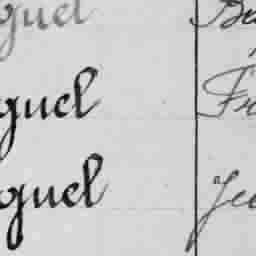 guel Be
guel Fr
guel Je